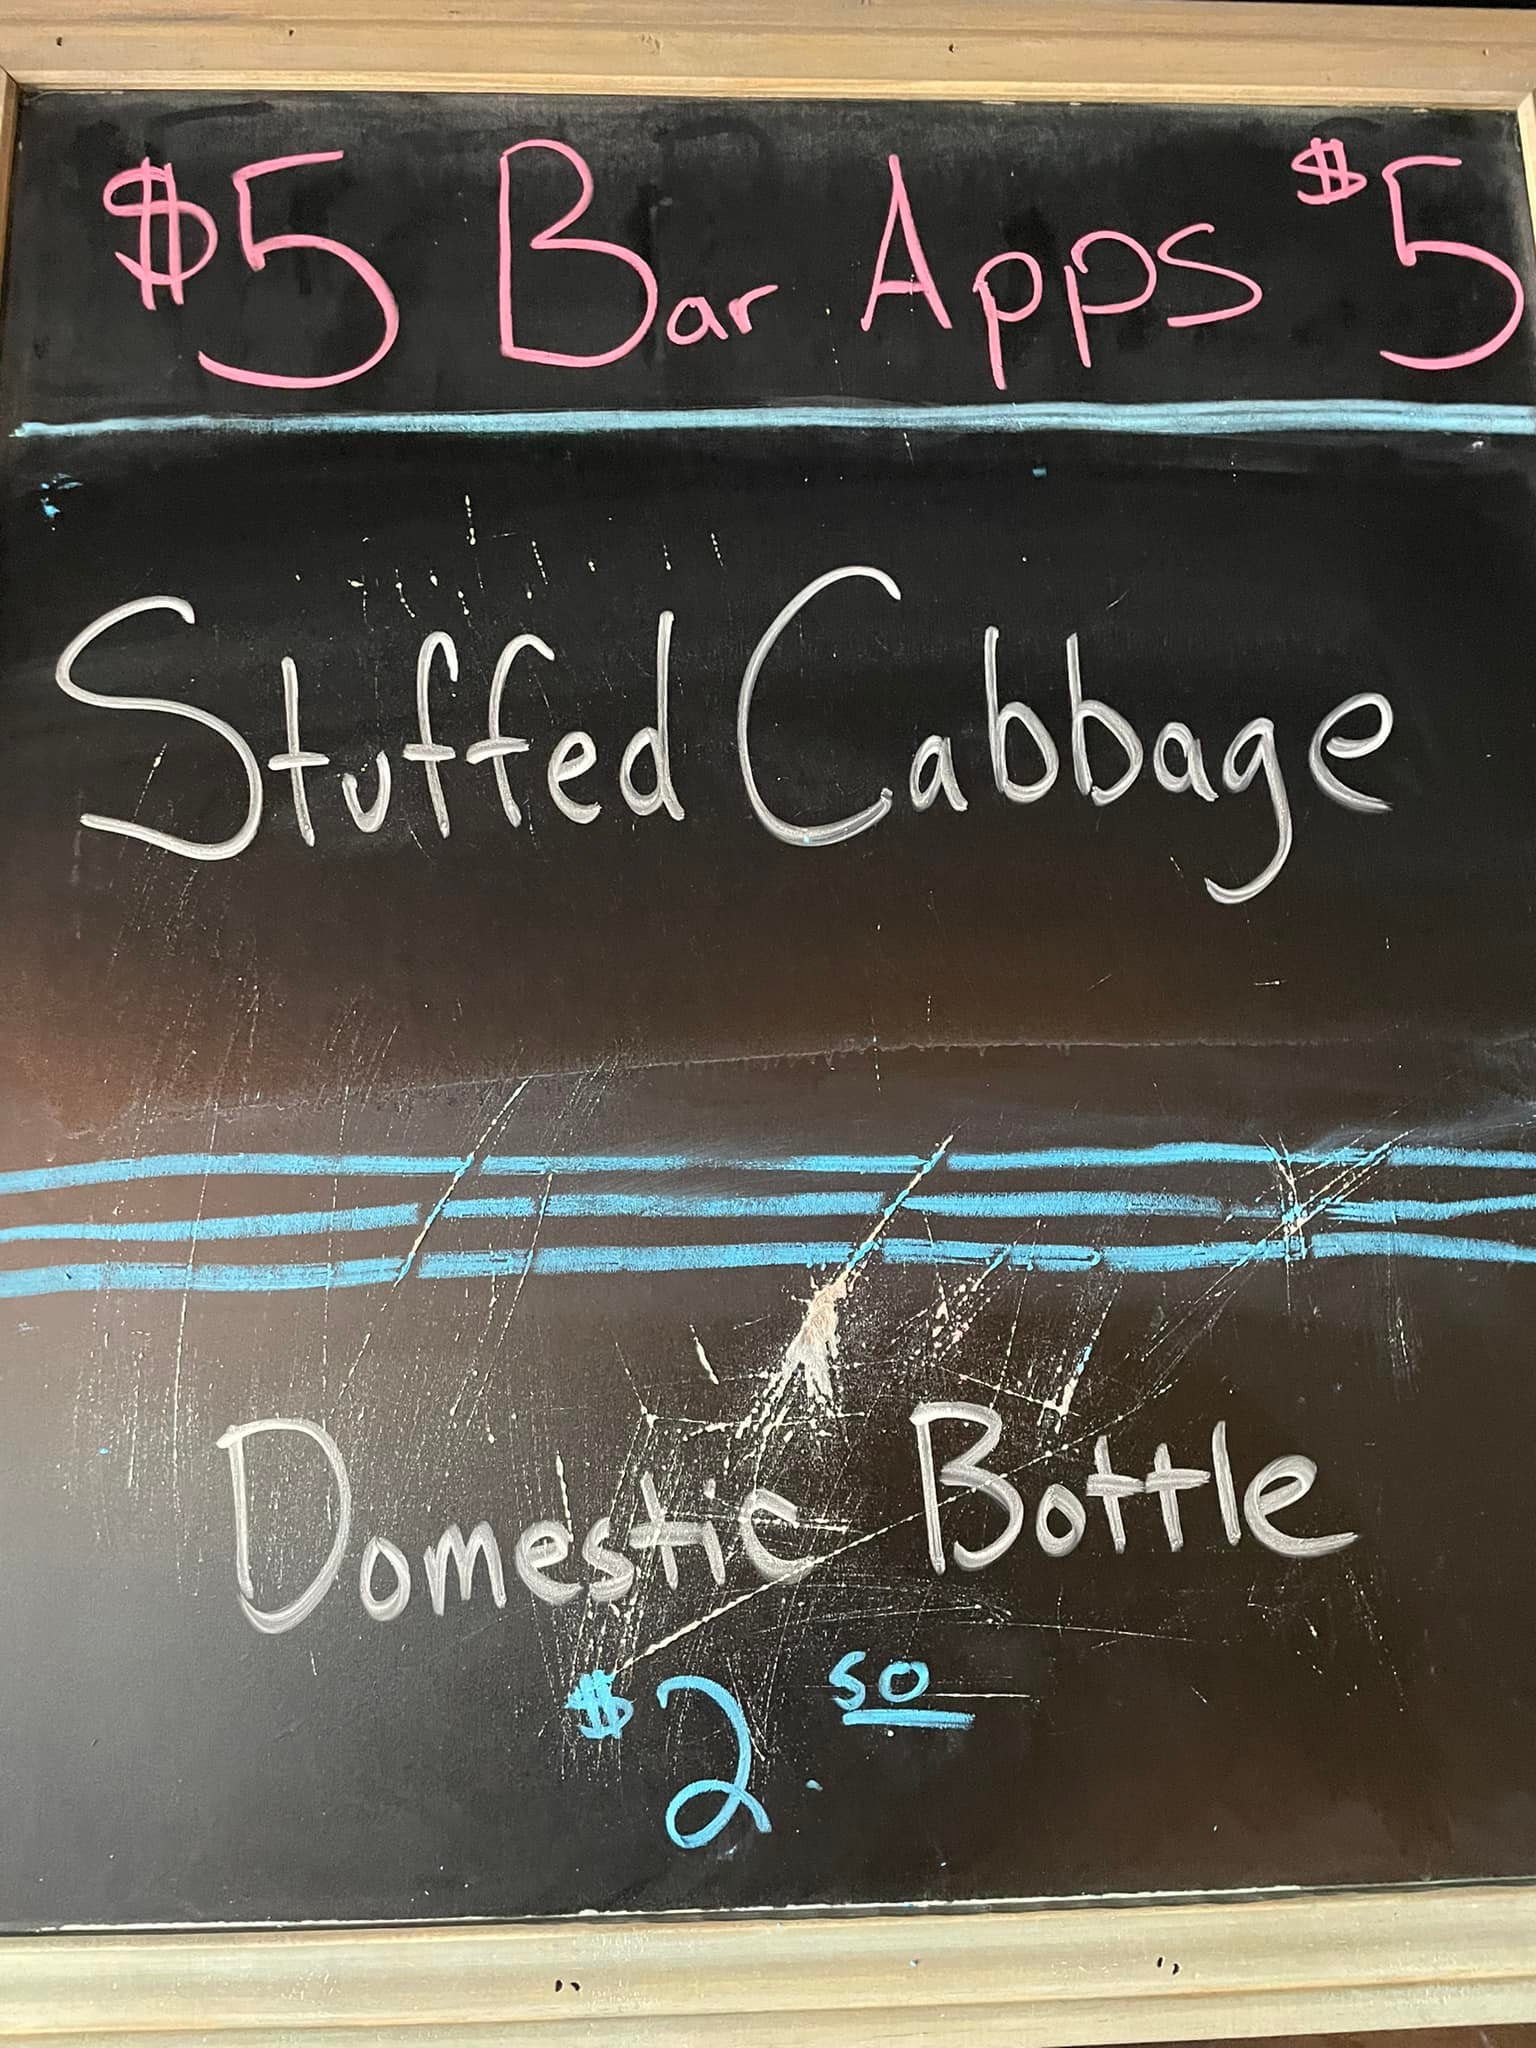 $5 Bar Apps $5
Stuffed Cabbage
Domestic Bottle
$2.50